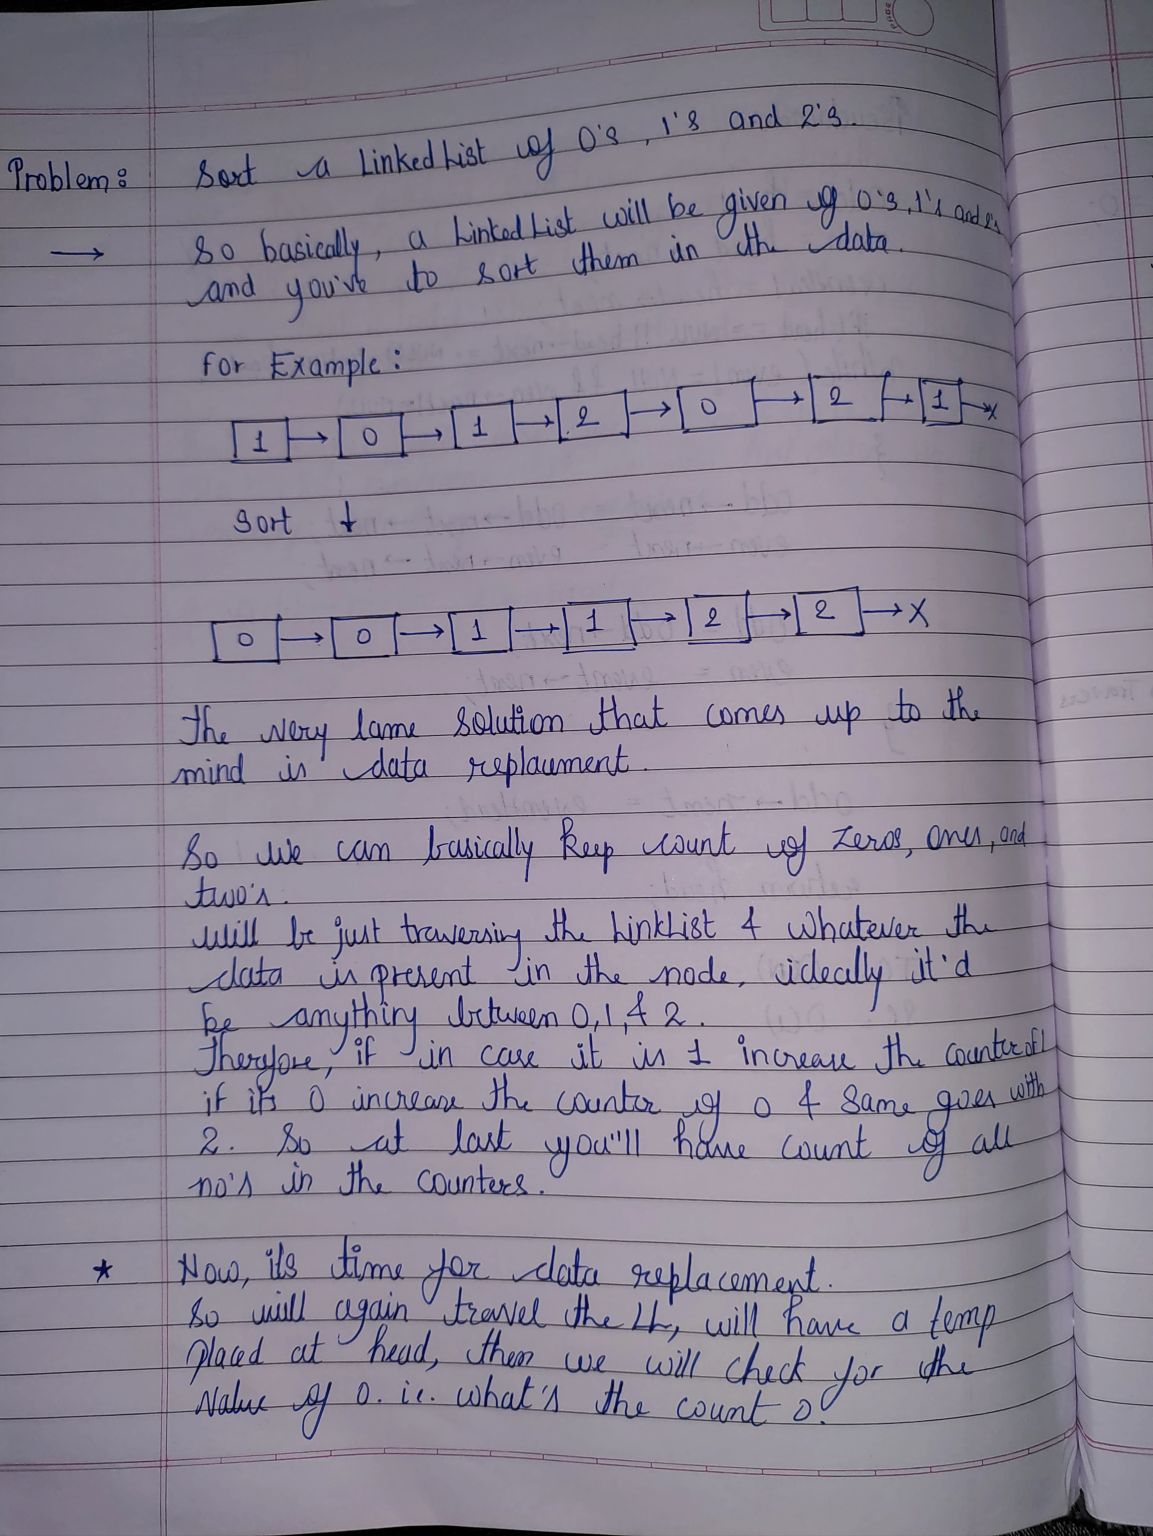 Problem: Sort a Linked List of 0's, 1's and 2's.
→ So basically, a Linked List will be given of 0's, 1's and 2's
and you've to sort them in the data.
for Example:
1 → 0 → 1 → 2 → 0 → 2 → 1 → x
Sort ↓
0 → 0 → 1 → 1 → 2 → 2 → X
The very lame solution that comes up to the
mind is data replaument.
So we can basically keep count of zeros, ones, and
two's.
will be just traversing the LinkList & whatever the
data is present in the node, ideally it'd
be anything between 0, 1, & 2.
Therfore, if in case it is 1 increase the counter of 1
if its 0 increase the counter of 0 & same goes with
2. So at last you"ll have count of all
no's in the counters.
* Now, its time for data replacement.
So will again travel the LL, will have a temp
placed at head, then we will check for the
value of 0. i.e. what's the count 0.